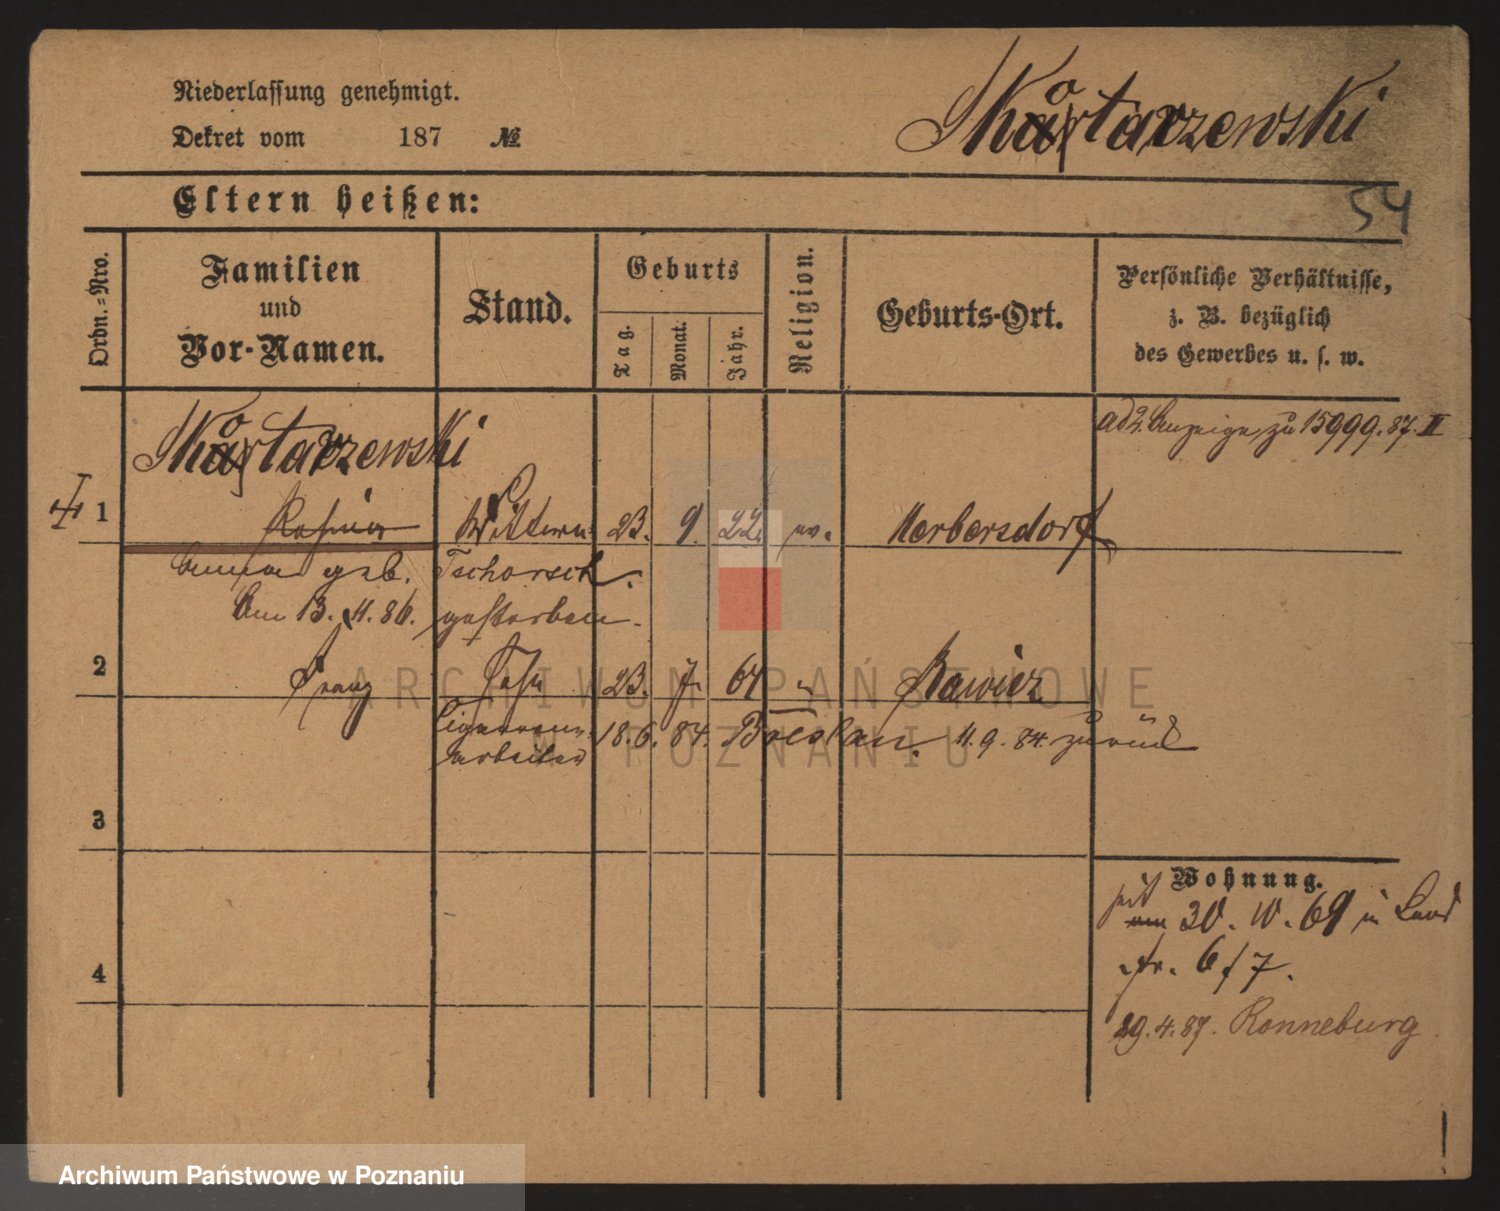 Niederlassung genehmigt.
Dekret vom 187 №
Skortarzewski
54
Eltern heißen:
Ordn.=Nro.
Familien
und
Vor-Namen.
Stand.
Geburts
Tag.
Monat.
Jahr.
Religion.
Geburts-Ort.
Persönliche Verhältnisse,
z. B. bezüglich
des Gewerbes u. s. w.
ad 2. Anzeige zu 15999.87. II
Skortarzewski
1 Wittwe 23. 9. 22. ev. Herbersdorf
Anna geb. Tschorsch.
Am 13. 11. 86. gestorben.
2 Franz Sohn 23. 7. 64 " Rawicz
Cigarren- 18. 6. 84. Breslau. 11. 9. 84. zurück
arbeiter
3
Wohnung.
seit
am 30. 10. 69 in Land
str. 6/7.
4
29. 4. 87. Ronneburg
ARCHIWUM PAŃSTWOWE
W POZNANIU
Archiwum Państwowe w Poznaniu